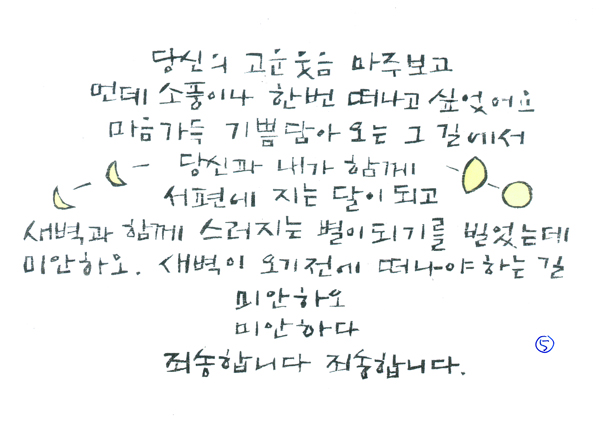 당신의 고운웃음 마주보고
먼데 소풍이나 한번 떠나고 싶었어요
마음가득 기쁨담아 오는 그 길에서
당신과 내가 함께
서편에 지는 달이 되고
새벽과 함께 스러지는 별이되기를 빌었는데
미안하오. 새벽이 오기전에 떠나야하는 길
미안하오
미안하다
죄송합니다 죄송합니다.
⑤